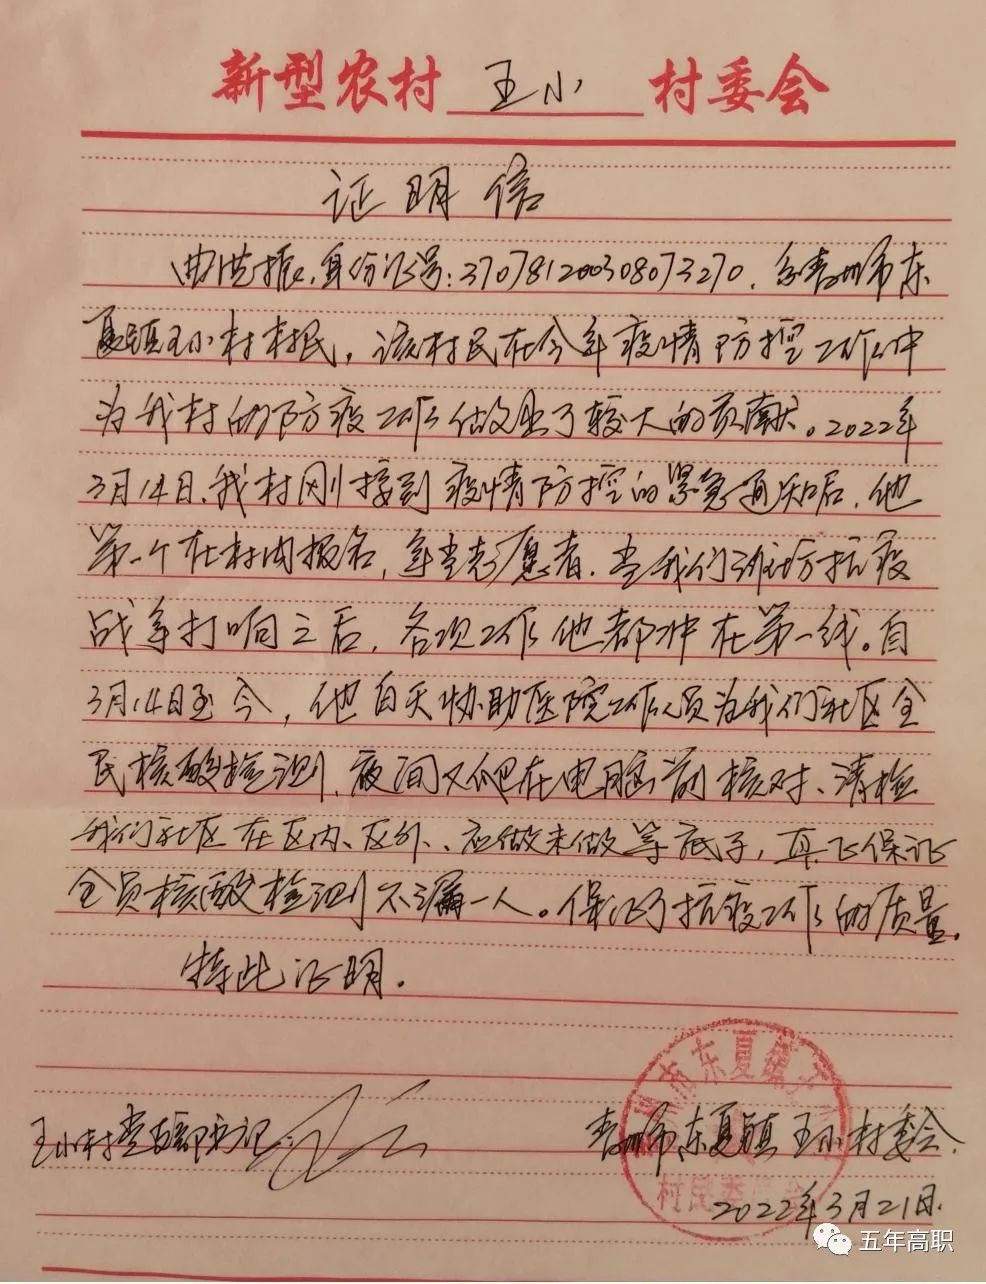 新型农村 王小 村委会
证明信
曲洪振,身份证号:370781200308073270.系青州市东
夏镇王小村村民,该村民在今年疫情防控工作中
为我村的防疫工作做出了较大的贡献。2022年
3月14日、我村刚接到疫情防控的紧急通知后,他
第一个在村内报名,争当志愿者.当我们the防抗疫
战争打响之后,各项工作他都冲在第一线。自
3月14日至今,他白天协助医院工作人员为我们社区全
民核酸检测,夜间又爬在电脑前核对、清检
我们社区在区内、区外、应做未做等底子,真正保证
全员核酸检测不漏一人。保证了抗疫工作的质量。
特此证明.
王小村党支部书记:
青州市东夏镇王小村委会.
2022年3月21日.
州市东夏镇王
村民委员会
五年高职